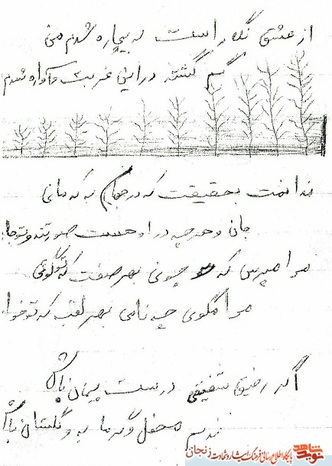 از عشق نگار است که بیچاره شدم من
گم گشته در این غربت و آواره شدم
ندانمت بحقیقت که در جهان به که مانی
جان و هر چه در او هست صورتند و تو جا
مرا مپرس که چونی بهر صفت که تو گوئی
مرا مگوی چه نامی بهر لقب که تو خوا
اگر رفیق شفیقی درست پیمان باش
ندیم محفل و گرمابه و گلستان باش
نوید شاهد پایگاه اطلاع رسانی فرهنگ ایثار و شهادت زنجان